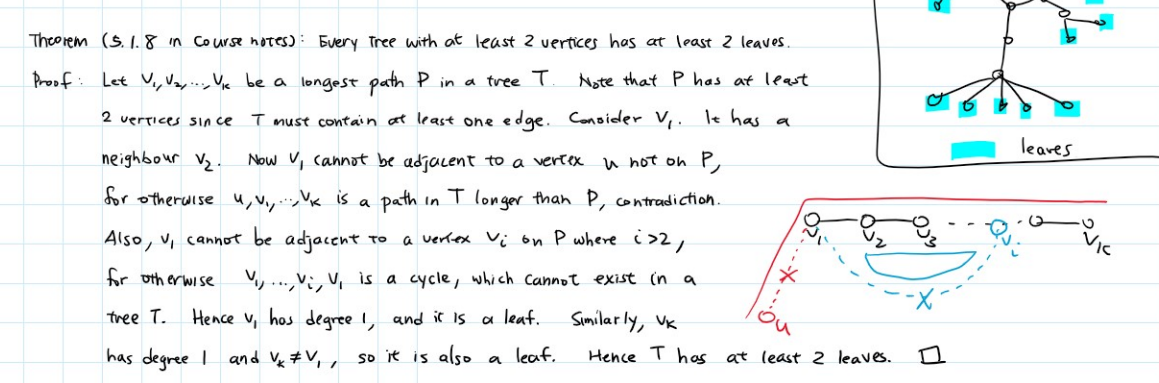 Theorem (5.1.8 in Course notes): Every tree with at least 2 vertices has at least 2 leaves.
Proof: Let V₁, V₂, ..., Vₖ be a longest path P in a tree T. Note that P has at least
2 vertices since T must contain at least one edge. Consider V₁. It has a
neighbour V₂. Now V₁ cannot be adjacent to a vertex u not on P,
for otherwise u, V₁, ..., Vₖ is a path in T longer than P, contradiction.
Also, V₁ cannot be adjacent to a vertex Vᵢ on P where i>2,
for otherwise V₁, ..., Vᵢ, V₁ is a cycle, which cannot exist in a
tree T. Hence V₁ has degree 1, and it is a leaf. Similarly, Vₖ
has degree 1 and Vₖ ≠ V₁, so it is also a leaf. Hence T has at least 2 leaves. □
leaves
V₁ V₂ V₃ Vᵢ Vₖ
u